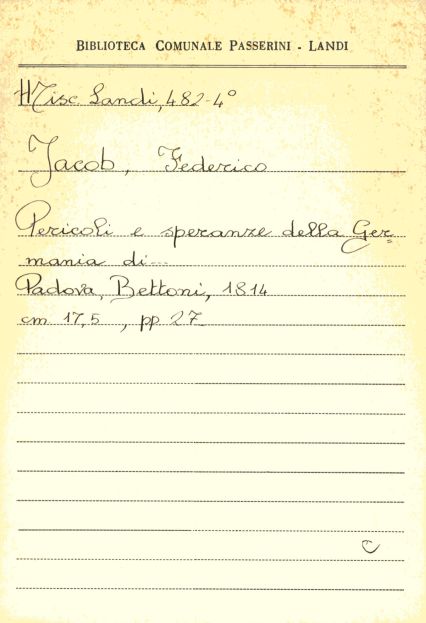 BIBLIOTECA COMUNALE PASSERINI - LANDI
Misc. Landi, 482-4°
Jacob, Federico
Pericoli e speranze della Ger=
mania di...
Padova, Bettoni, 1814
cm 17,5 , pp 27